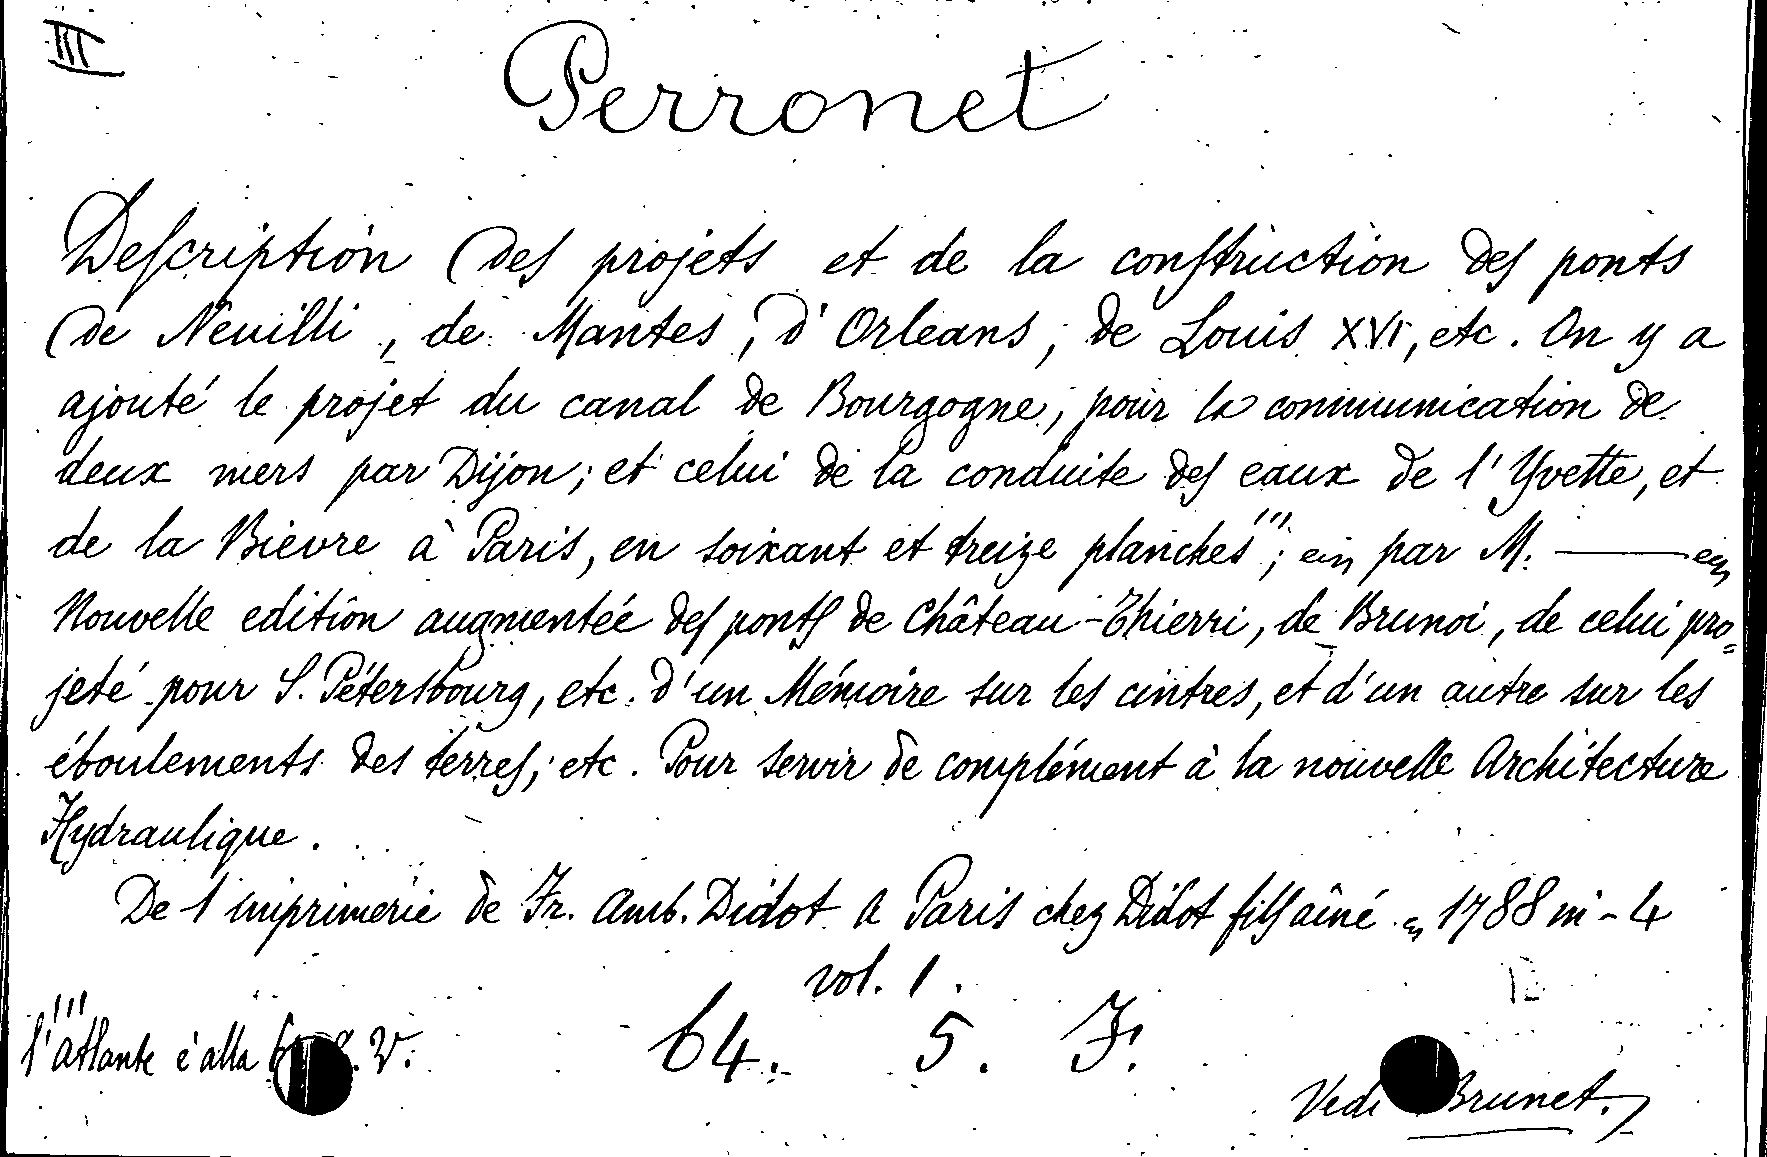 III
Perronet
Description des projets et de la construction des ponts
de Neuilli, de Mantes, d'Orleans, de Louis XVI, etc. On y a
ajouté le projet du canal de Bourgogne, pour la communication de
deux mers par Dijon; et celui de la conduite des eaux de l'Yvette, et
de la Bievre à Paris, en soixant et treize planches"'; par M. ———
Nouvelle edition augmentée des ponts de Château-Thierri, de Brunoi, de celui pro=
jeté pour S. Pétersbourg, etc. d'un Mémoire sur les cintres, et d'un autre sur les
éboulements des terres, etc. Pour servir de complément à la nouvelle Architecture
Hydraulique.
De l'imprimerie de Fr. Amb. Didot a Paris chez Didot fils aîné 1788 in-4
vol. 1.
"' l'atlante è alla V.
64. 5. F.
Vedi Brunet.